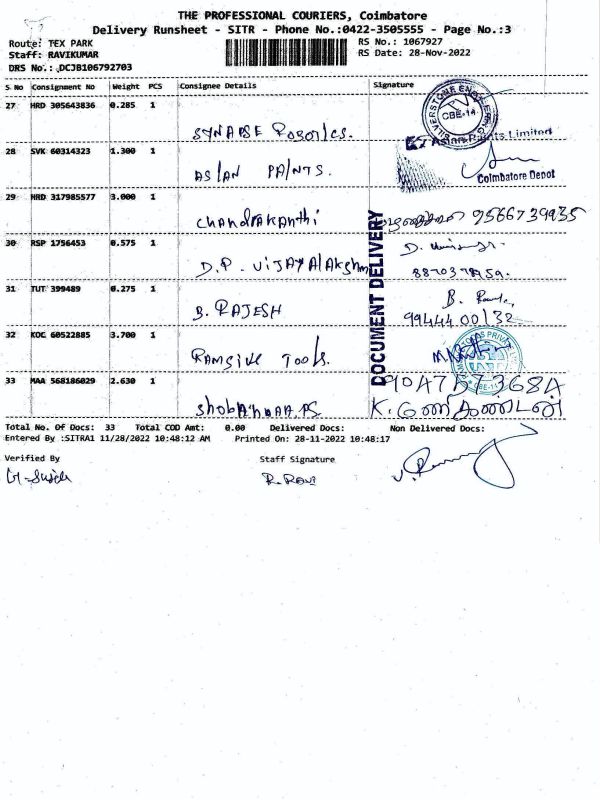 THE PROFESSIONAL COURIERS, Coimbatore
Delivery Runsheet - SITR - Phone No.:0422-3505555 - Page No.:3
Route: TEX PARK RS No.: 1067927
Staff: RAVIKUMAR RS Date: 28-Nov-2022
DRS No.: DCJB106792703
S No Consignment No Weight PCS Consignee Details Signature
27 HRD 305643836 0.285 1 SYNAPSE Robotics. CBE-14
28 SVK 60314323 1.300 1 ASIAN PAINTS. Asian Paints Limited
Coimbatore Depot
29 HRD 317985577 3.000 1 Chandrakanthi 9566739935
30 RSP 1756453 0.575 1 D.P. VIJAYAlAkshmi D.
31 TUT 399489 0.275 1 B. RAJESH B.
9944400132
32 KOC 60522885 3.700 1 Tools.
33 MAA 568186029 2.630 1 CBE-14
K.
DOCUMENT DELIVERY
Total No. Of Docs: 33 Total COD Amt: 0.00 Delivered Docs: Non Delivered Docs:
Entered By :SITRA1 11/28/2022 10:48:12 AM Printed On: 28-11-2022 10:48:17
Verified By Staff Signature
R. Ravi